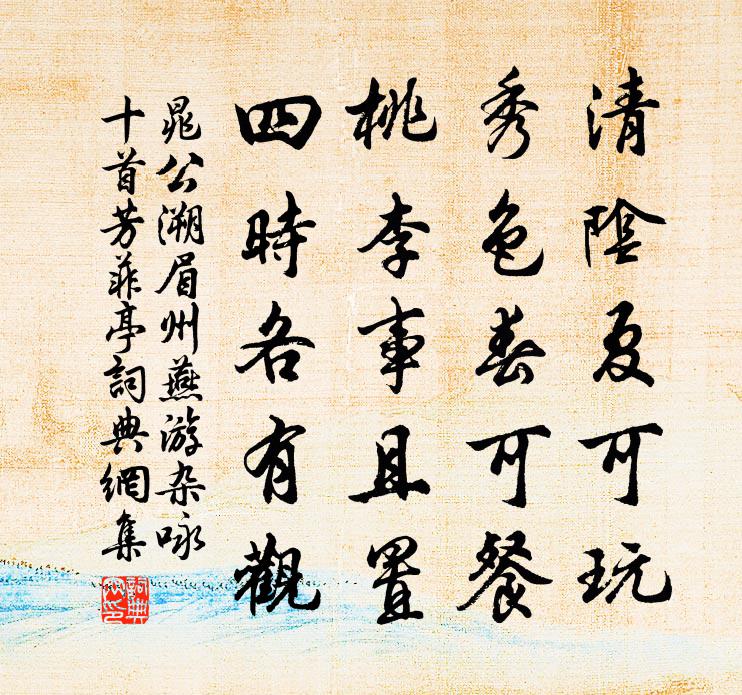 清陰夏可玩
秀色春可餐
桃李事且置
四時各有觀
晁公溯眉州燕游杂咏
十首芳菲亭詞典網集